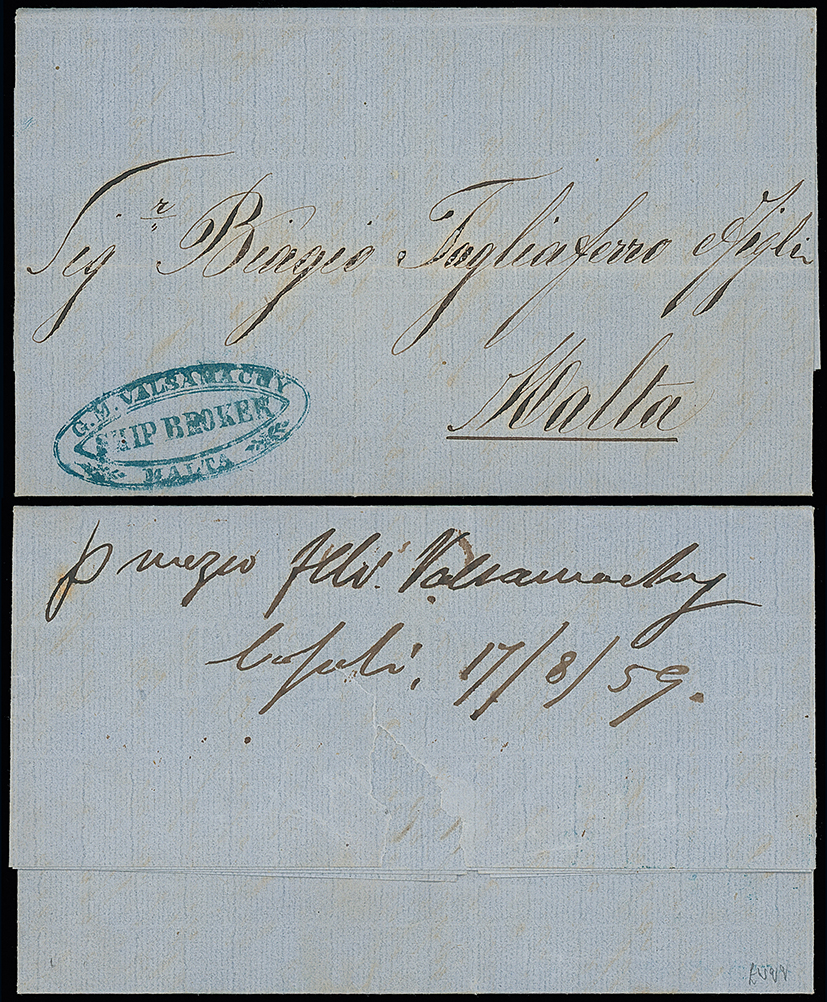 Sigr Biagio Tagliaferro & figli
Malta
G. M. VALSAMACHY
SHIP BROKER
MALTA
p mezzo Valsamachy
17/8/59.